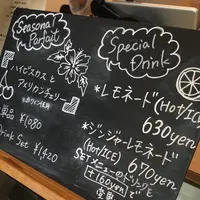 Seasonal
Parfait
ハイビスカスと
アメリカンチェリー
単品 ¥1,080
Drink Set ¥1,420
Special
Drink
*レモネード(Hot/ICE)
630yen
*ジンジャーレモネード
(Hot/ICE) 670yen
SETメニューのドリンクを
+160yenで
変更